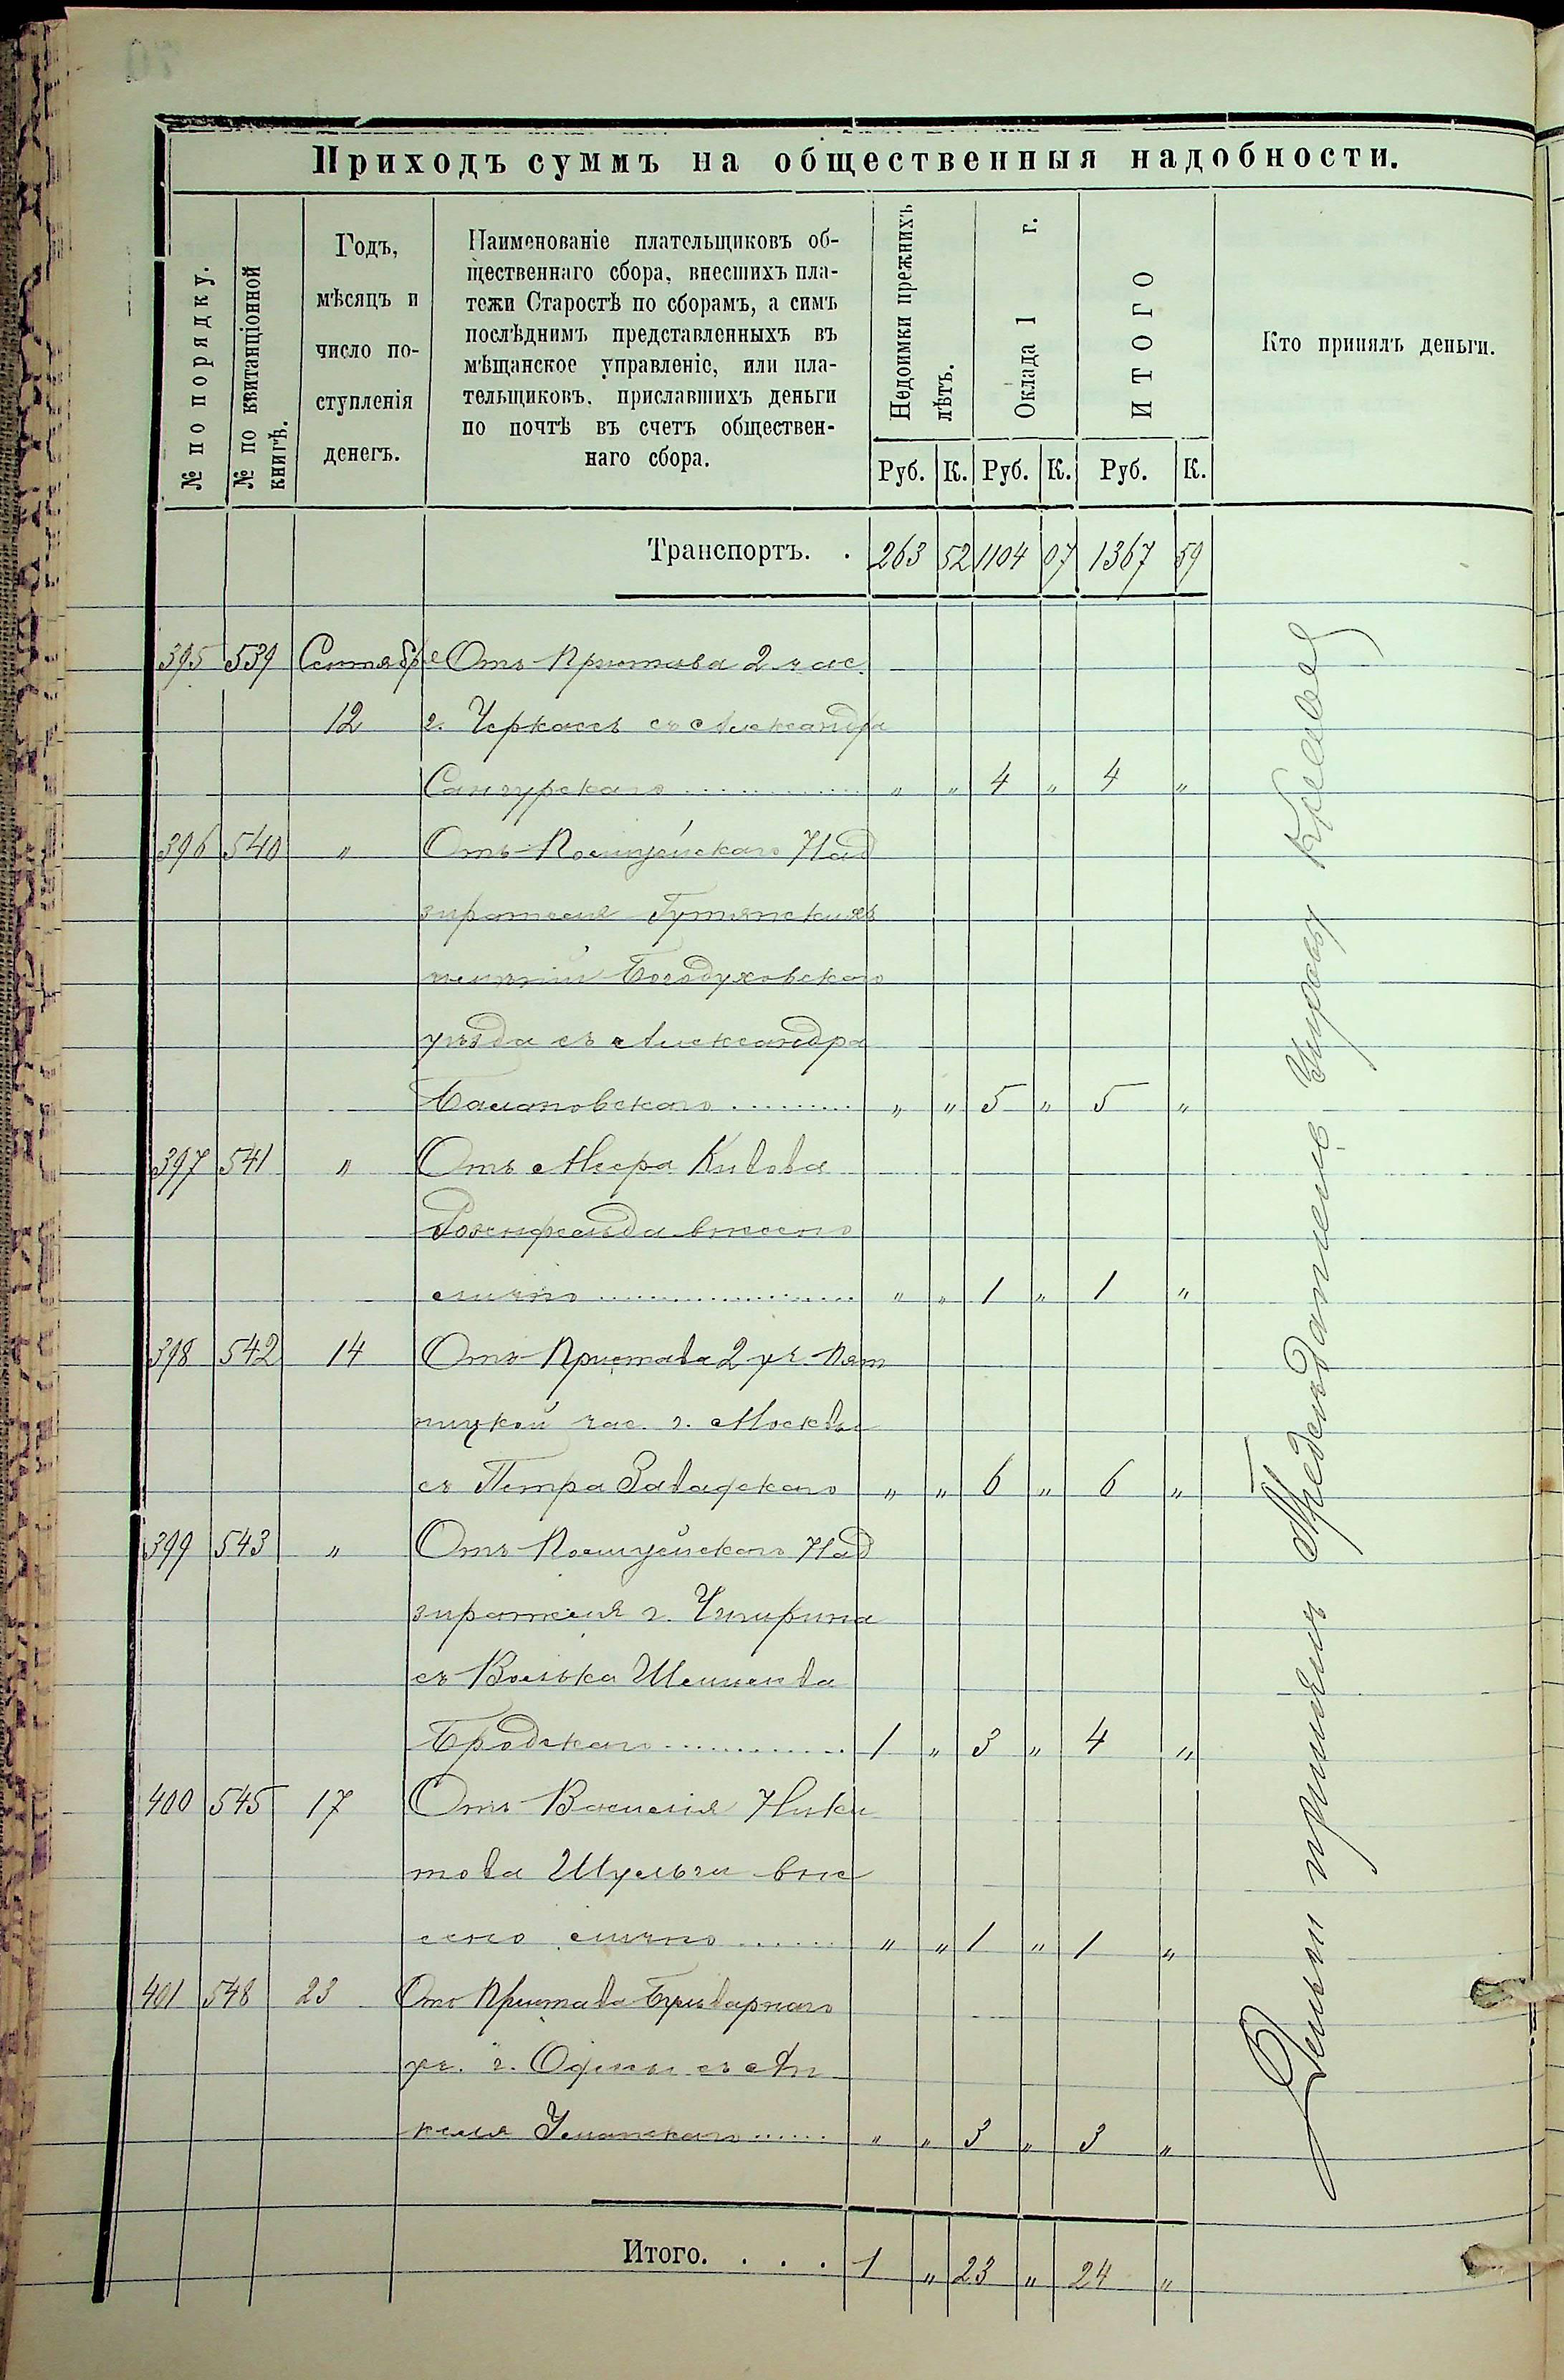 Приходъ суммъ на общественныя надобности.
№ по порядку.
№ по квитанціонной книгѣ.
Годъ, мѣсяцъ и число поступленія денегъ.
Наименованіе плательщиковъ об-
щественнаго сбора, внесшихъ пла-
тежи Старостѣ по сборамъ, а симъ
послѣднимъ представленныхъ въ
мѣщанское управленіе, или пла-
тельщиковъ, приславшихъ деньги
по почтѣ въ счетъ обществен-
наго сбора.
Недоимки прежнихъ лѣтъ.
Оклада 1 г.
ИТОГО
Кто принялъ деньги.
Руб. К. Руб. К. Руб. К.
Транспортъ. . 263 52 1104 07 1367 59
395 539 Сентября Отъ Пристава 2 час.
12 г. Черкассъ съ Александра
Сангурскаго " " 4 " 4 "
396 540 " Отъ Полицейскаго Над
зирателя Гутянскихъ
имѣній Богодуховскаго
уѣзда съ Александра
Балановскаго " " 5 " 5 "
397 541 " Отъ Меера Кивова
Розенфельда внесено
лично " " 1 " 1 "
398 542 14 Отъ Пристава 2 уч. Пят
ницкой час. г. Москвы
съ Петра Завадскаго " " 6 " 6 "
399 543 " Отъ Полицейскаго Над
зирателя г. Чигирина
съ Волька
Бродскаго 1 " 3 " 4 "
400 545 17 Отъ Василія Ники
това Шульги вне
сено лично " " 1 " 1 "
401 548 23 Отъ Пристава Бульварнаго
уч. г. Одессы съ Ан
келя Уманскаго " " 3 " 3 "
Итого. . . . 1 " 23 " 24 "
Деньги принялъ